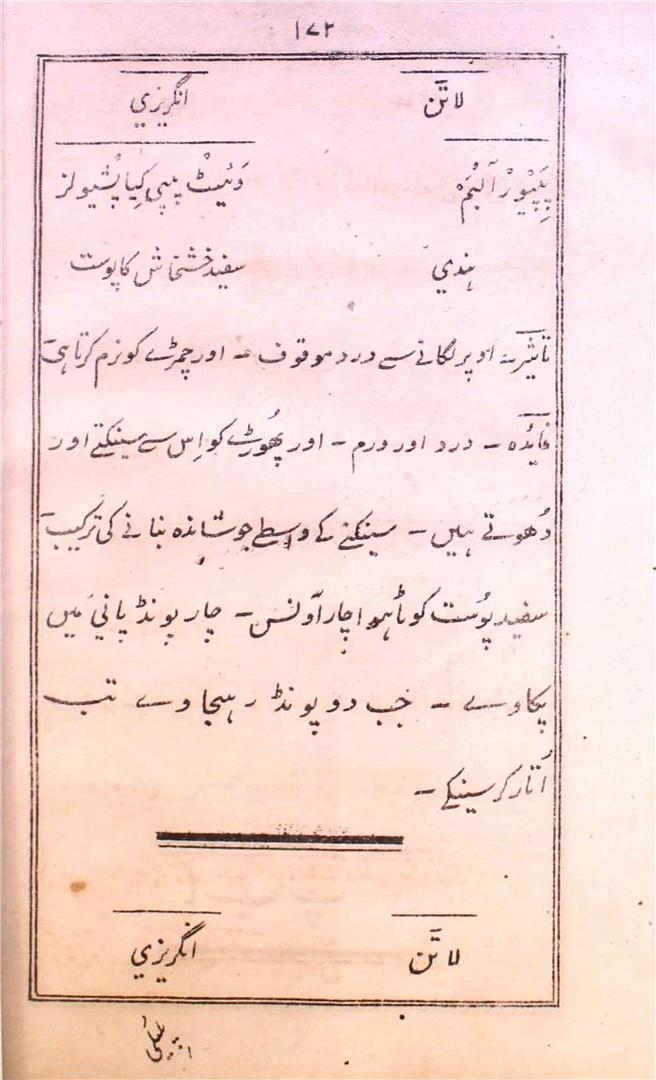 ۱۷۲
لاتن انگریزي
پپپیورْ آلبمْ وَئیٹ پیپی کیاپشیولز
ہندي سفید خشخاش کا پوست
تاثیر ۔ اوپر لگانے سے درد موقوف ۔ اور چمڑے کو نرم کرتا ہی
فایٔدہ ۔ درد اور ورم ۔ اور پھُوڑے کو اِس سے سینکتے اور
دُھوتے ہیں ۔ سینکنے کے واسطے جوشاندہ بنانے کی ترکیب
سفید پُوست کوٹا ہوا چار آونس ۔ چار پونڈ پاني میں
پکاوے ۔ جب دو پونڈ رہجاوے تب
اُتار کر سینکے ۔
لاتن انگریزي